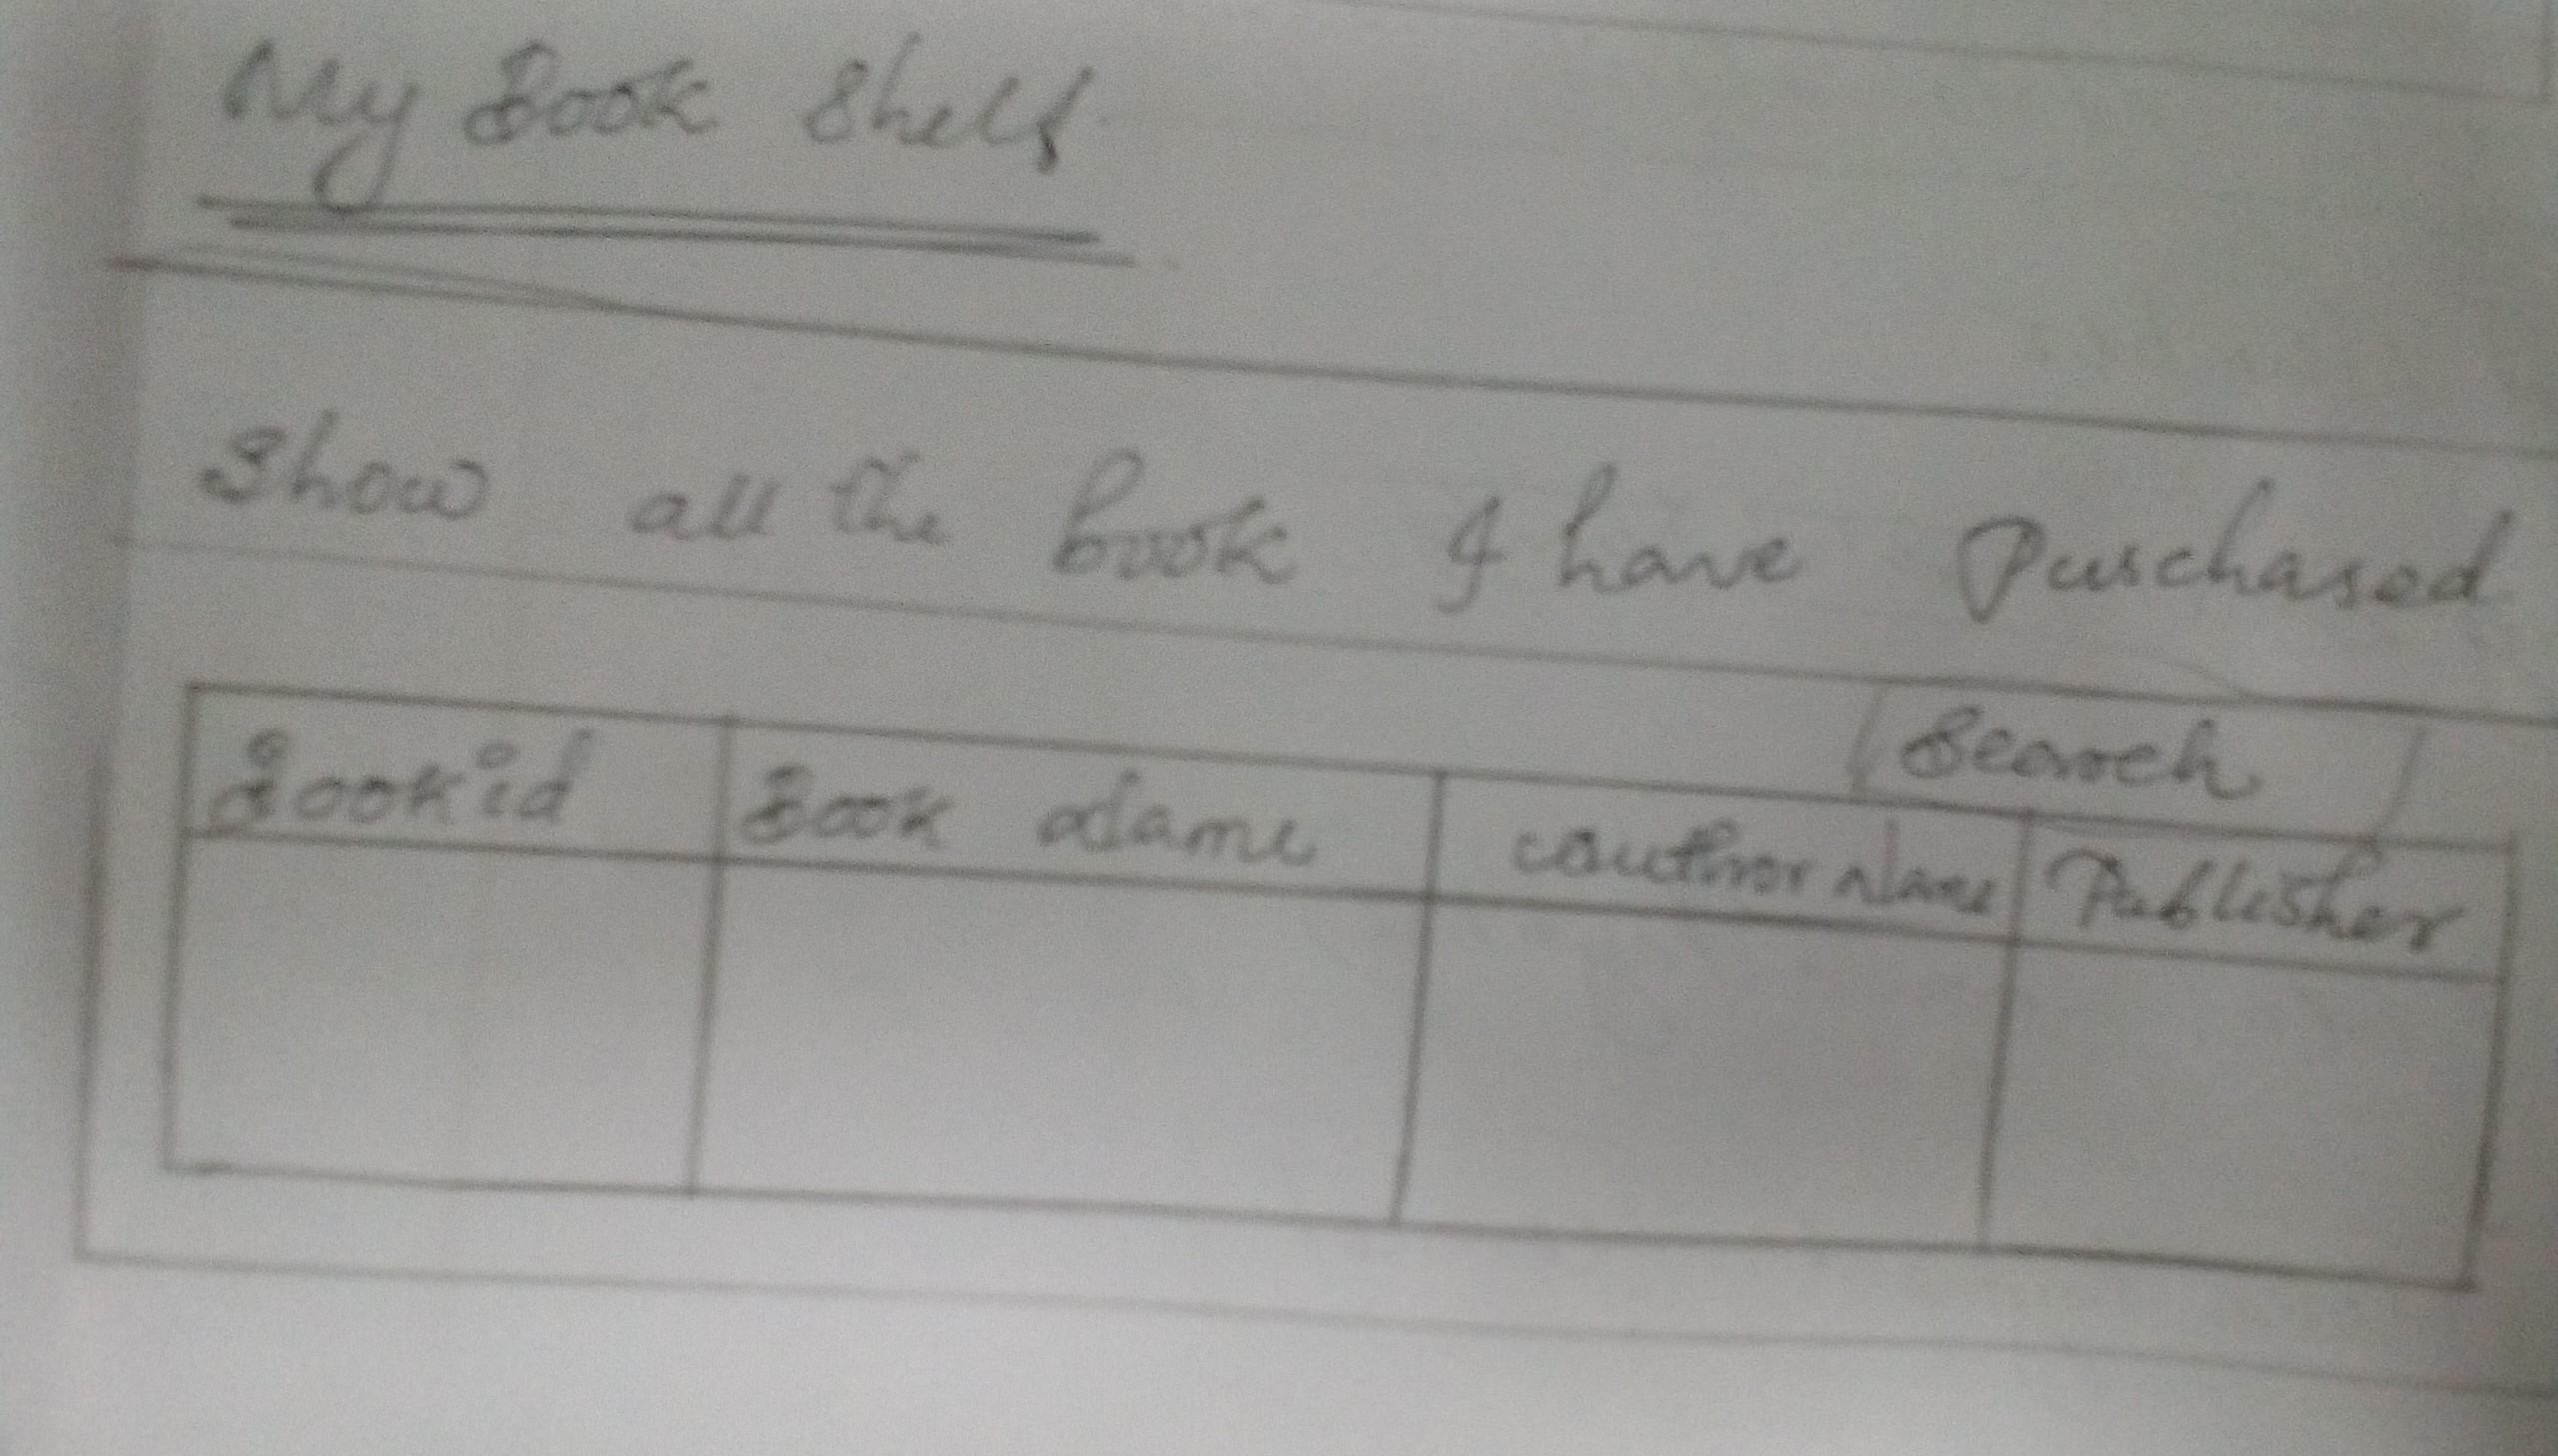 My Book Shelf
Show all the book I have Purchased
Search
Book id Book Name Author Name Publisher